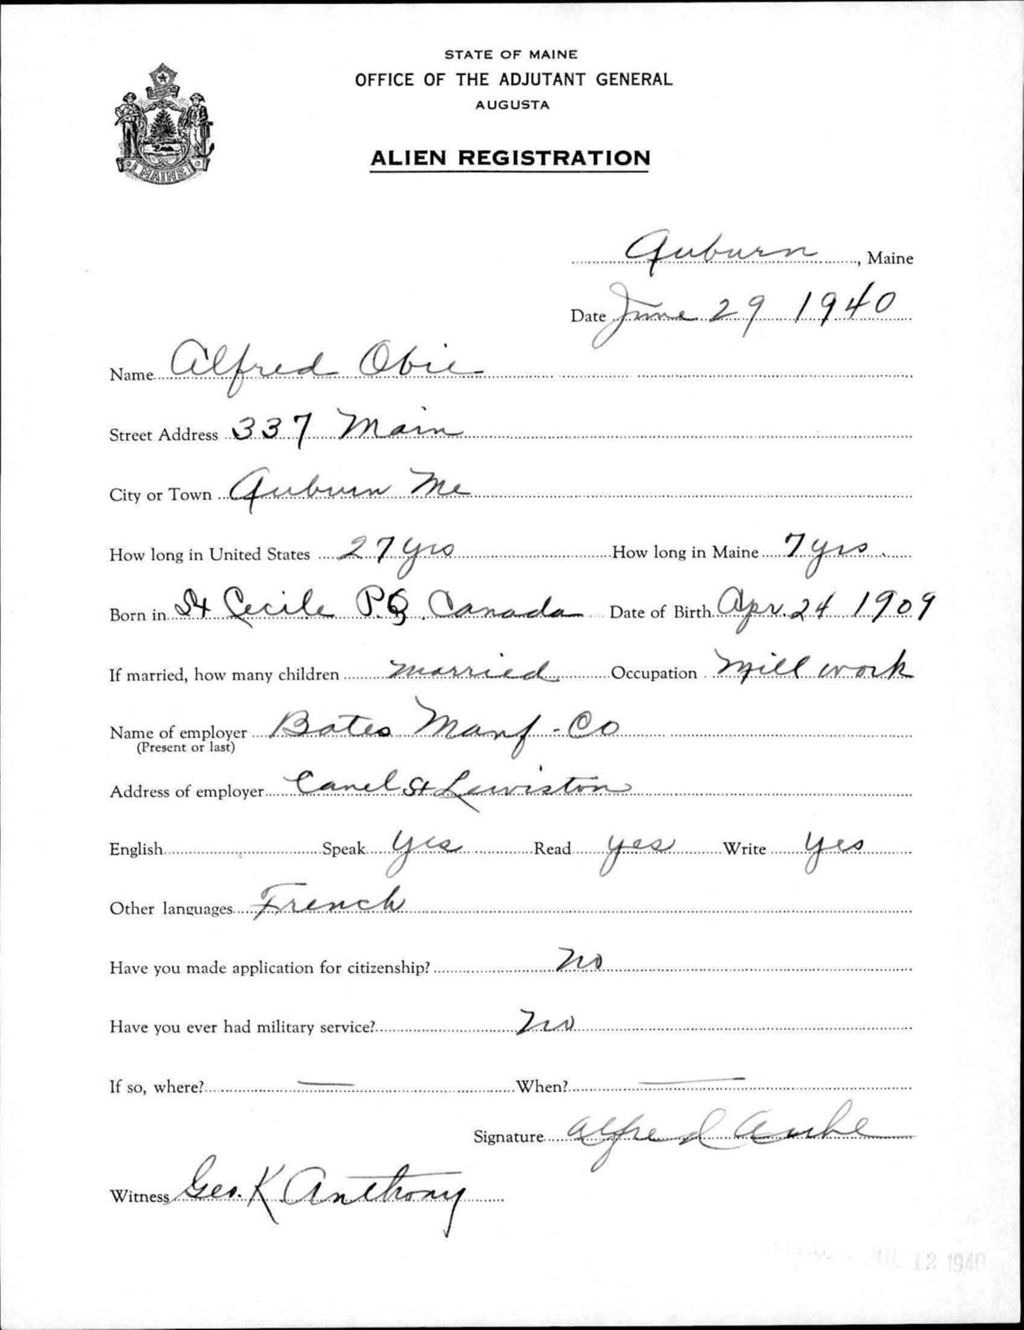 STATE OF MAINE
OFFICE OF THE ADJUTANT GENERAL
AUGUSTA
ALIEN REGISTRATION
MAINE
Auburn, Maine
Date June 29 1940
Name Alfred Obie
Street Address 337 Main
City or Town Auburn Me
How long in United States 27 yrs How long in Maine 7 yrs.
Born in St Cecile P.Q. Canada Date of Birth Apr. 24 1909
If married, how many children married Occupation Mill work
Name of employer Bates Manf - Co
(Present or last)
Address of employer Canel St Lewiston
English Speak yes Read yes Write yes
Other languages French
Have you made application for citizenship? no
Have you ever had military service? no
If so, where? — When? —
Signature Alfred Aube
Witness Geo. K Anthony
JUL 12 1940